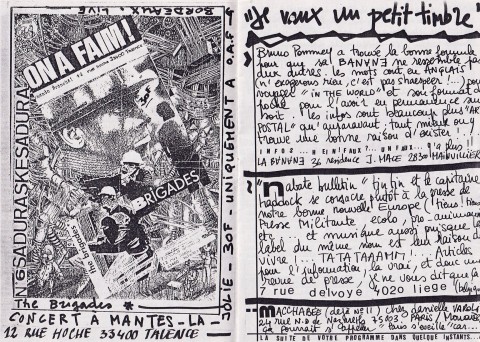 BORDEAUX. LIVE
ON A FAIM!
N°6SADURASKESADURA
BRIGADES
The brigades
JOLIE - 30F - UNIQUEMENT A O.A.F.
The Brigades
CONCERT À MANTES-LA-
12 RUE HOCHE 33400 TALENCE
"Je veux un petit timbre"
Bruno Pommey a trouvé la bonne formule
pour que sa BANANE ne ressemble pas
aux autres. les mots sont en ANGLAIS
(n'exagérons rien, c'est pas shakespeer...) pour
"IN THE WORLD" et son format de
poche pour l'avoir en permanence sur
soi. les infos sont beaucoup plus "ART
POSTAL" qu'auparavant. tant mieux on y
trouve une bonne raison d'exister!..
INFOS
LA BANANE 26 residence J. MACE 28300 MAINVILLIERS
bulletin "tintin et le capitaine
haddock se consacre plutôt à la presse de
notre bonne nouvelle Europe (tiens! tiens!)
Presse Militante, ecolo, pro-animaux
etc... et musique aussi puisque le
label du même nom est leur raison de
vivre!... TATATAAAMM!... Articles
pour l'information, la vraie, et donc une
revue de presse, ne vous dit que ça
7 rue delvoye 4020 liège (belgique)
MACCHABÉE (déjà N°11) chez danielle VAROLI
24 rue N.D de Nazareth 75003 PARIS/
ça pourrait s'appeler "Paris s'éveille"car...
LA SUITE DE VOTRE PROGRAMME DANS QUELQUES INSTANTS..